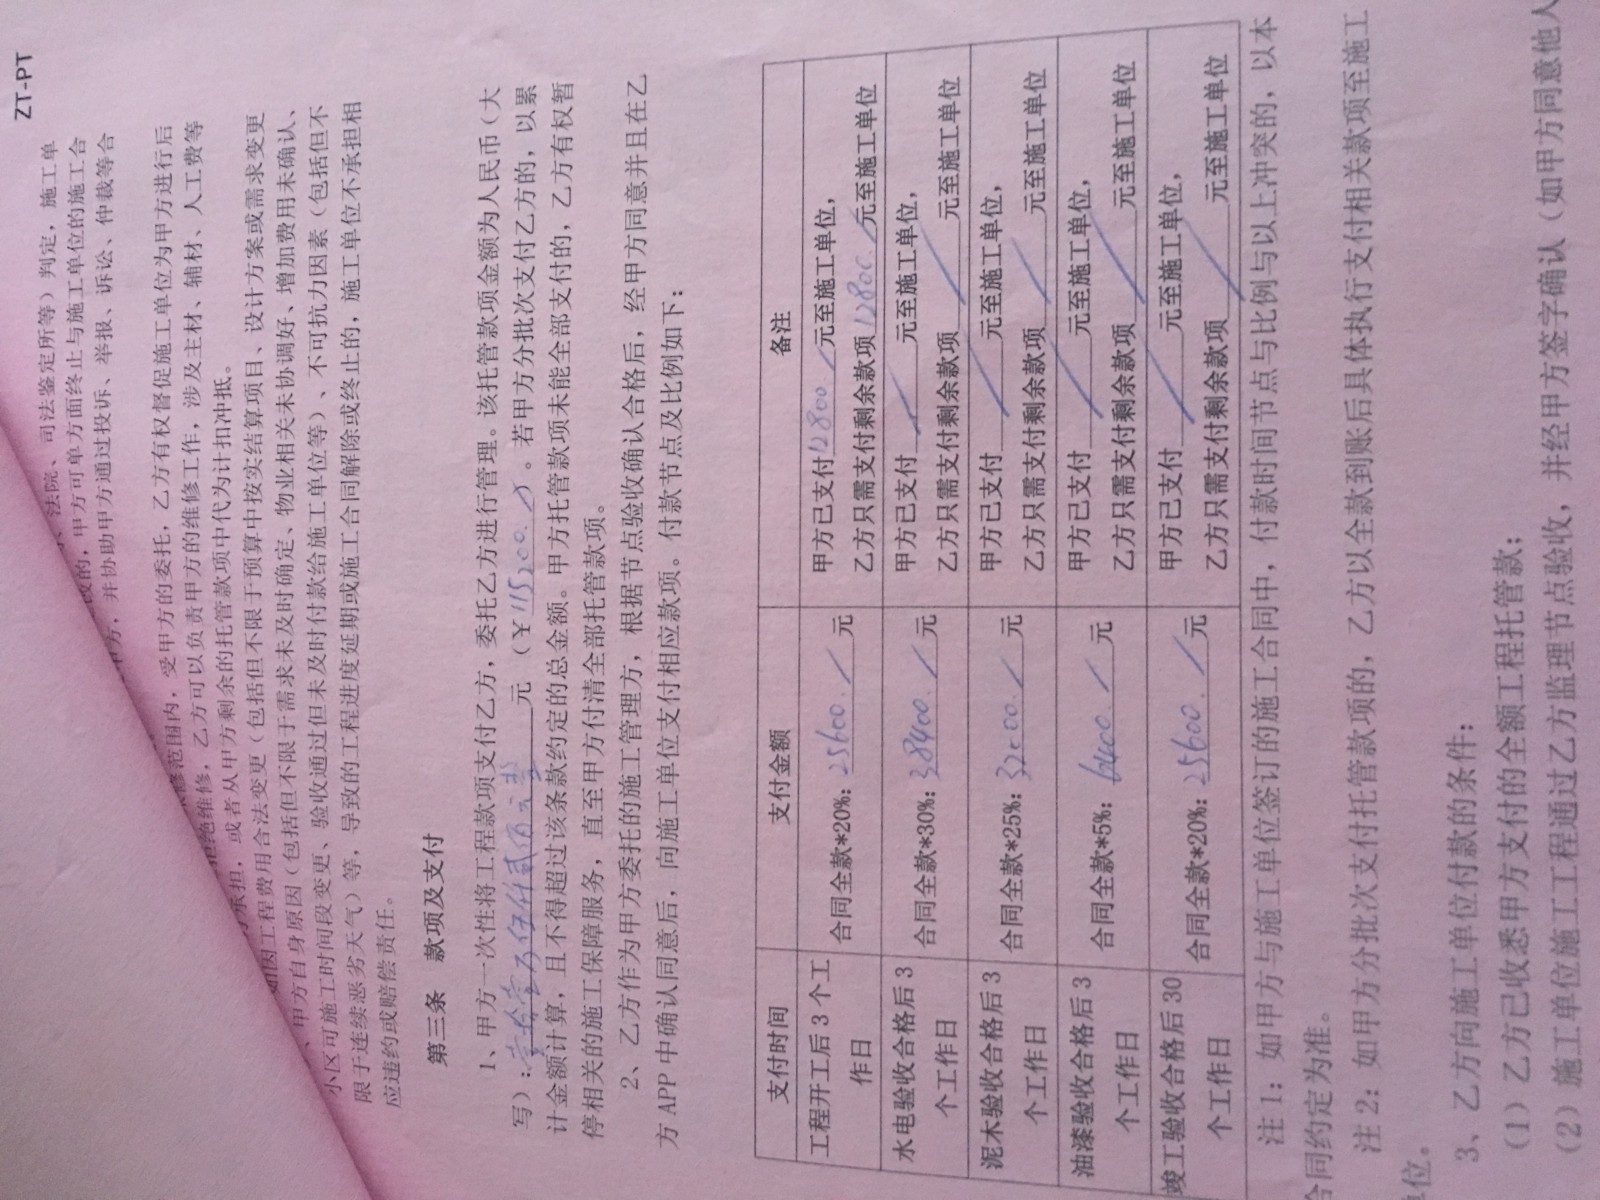 ZT-PT
法院、司法鉴定所等）判定，施工单
改的，甲方可单方面终止与施工单位的施工合
甲方，并协助甲方通过投诉、举报、诉讼、仲裁等合
修范围内，受甲方的委托，乙方有权督促施工单位为甲方进行后
拒绝维修，乙方可以负责甲方的维修工作，涉及主材、辅材、人工费等
承担，或者从甲方剩余的托管款项中代为计扣冲抵。
如因工程费用合法变更（包括但不限于预算中按实结算项目、设计方案或需求变更
、甲方自身原因（包括但不限于需求未及时确定、物业相关未协调好、增加费用未确认、
小区可施工时间段变更、验收通过但未及时付款给施工单位等）、不可抗力因素（包括但不
限于连续恶劣天气）等，导致的工程进度延期或施工合同解除或终止的，施工单位不承担相
应违约或赔偿责任。
第三条 款项及支付
1、甲方一次性将工程款项支付乙方，委托乙方进行管理。该托管款项金额为人民币（大
写）：壹拾壹万伍仟贰佰元整元（￥115200.／）。若甲方分批次支付乙方的，以累
计金额计算，且不得超过该条款约定的总金额。甲方托管款项未能全部支付的，乙方有权暂
停相关的施工保障服务，直至甲方付清全部托管款项。
2、乙方作为甲方委托的施工管理方，根据节点验收确认合格后，经甲方同意并且在乙
方 APP 中确认同意后，向施工单位支付相应款项。付款节点及比例如下：
支付时间 支付金额 备注
工程开工后 3 个工作日 合同全款*20%：25600.／元 甲方已支付12800／元至施工单位，
乙方只需支付剩余款项12800.／元至施工单位
水电验收合格后 3 个工作日 合同全款*30%：38400.／元 甲方已支付／元至施工单位，
乙方只需支付剩余款项／元至施工单位
泥木验收合格后 3 个工作日 合同全款*25%：32000.／元 甲方已支付／元至施工单位，
乙方只需支付剩余款项／元至施工单位
油漆验收合格后 3 个工作日 合同全款*5%：6400.／元 甲方已支付／元至施工单位，
乙方只需支付剩余款项／元至施工单位
竣工验收合格后 30 个工作日 合同全款*20%：25600.／元 甲方已支付／元至施工单位，
乙方只需支付剩余款项／元至施工单位
注 1：如甲方与施工单位签订的施工合同中，付款时间节点与比例与以上冲突的，以本
合同约定为准。
注 2：如甲方分批次支付托管款项的，乙方以全款到账后具体执行支付相关款项至施工
单位。
3、乙方向施工单位付款的条件：
（1）乙方已收悉甲方支付的全额工程托管款；
（2）施工单位施工工程通过乙方监理节点验收，并经甲方签字确认（如甲方同意他人